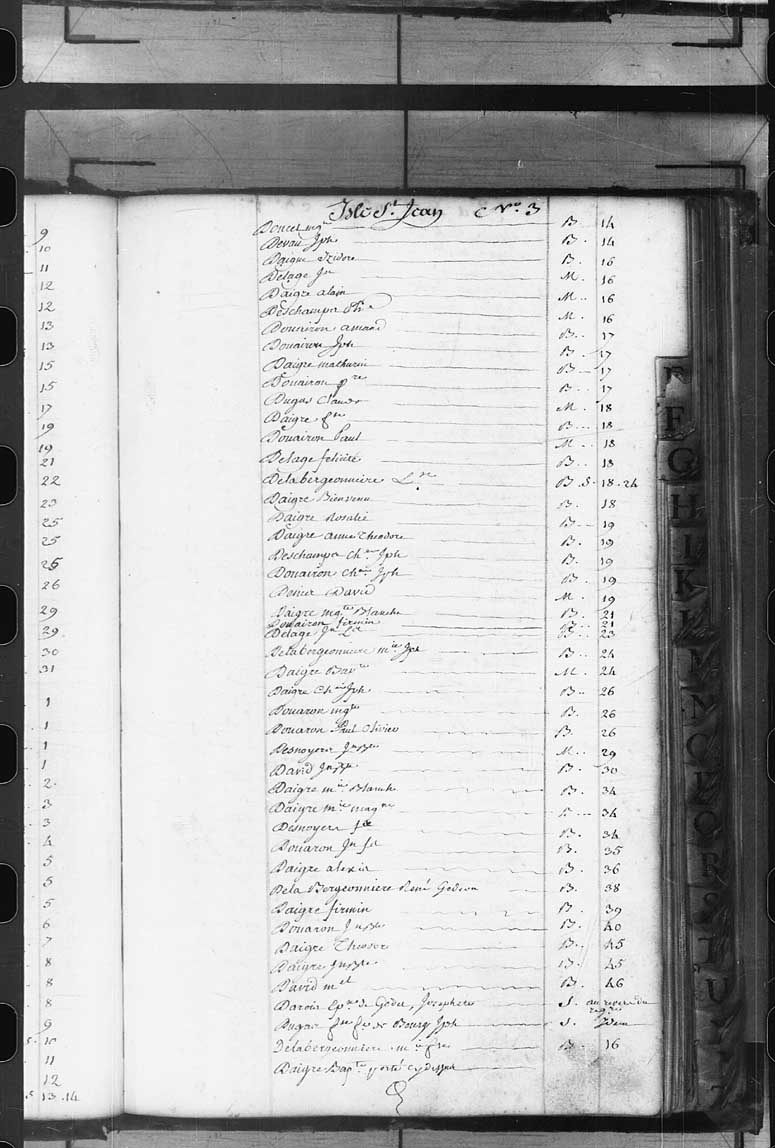 Isle St Jean C No 3
Doucet mgte B. 14
Devau Jph B. 14
Daigre Izidore B. 16
Delage Jn M. 16
Daigre alain M. 16
Deschamps M. 16
Douairon amand B. 17
Douairon Jph B. 17
Daigre mathurin B. 17
Douairon B. 17
Dugas Claude M. 18
Daigre B. 18
Douairon Paul M. 18
Delage felicité B. 18
Delabergeonniere B. S. 18. 24
Daigre Bienvenu B. 18
Daigre Rosalie B. 19
Daigre anne Theodore B. 19
Deschamps Ch. Jph B. 19
Douairon Ch. Jph B. 19
David M. 19
Daigre mgte Blanche B. 21
Douairon firmin B. 21
Delage Jn 23
Delabergeonniere mie Jph B. 24
Daigre M. 24
Daigre Ch. Jph B. 26
Douaron mgte B. 26
Douaron Paul Olivier B. 26
Desnoyers Jn Bte M. 29
David Jn Bte B. 30
Daigre mie Blanche B. 34
Daigre mie magne 34
Desnoyers B. 34
Douaron Jn B. 35
Daigre alexis B. 36
Dela Bergeonniere René Gedeon B. 38
Daigre firmin B. 39
Douaron Jn Bte B. 40
Daigre Theodore B. 45
Daigre Jn Bte B. 45
David mel B. 46
Darois de Godet, Josephete S. au revers du regtre
Dugas de Bourg Jph S. Idem
Delabergeonniere B. 16
Daigre Bapte porté cy dessus
9
10
11
12
12
13
13
15
15
17
19
19
21
22
23
25
25
25
26
29
29.
30
31
1
1
1
1
2.
3
3
4
5
5
5
6
7
8
8
8
9
10
11
12
13. 14
F
G
H
I
K
L
M
N
O
P
Q
R
S
T
U